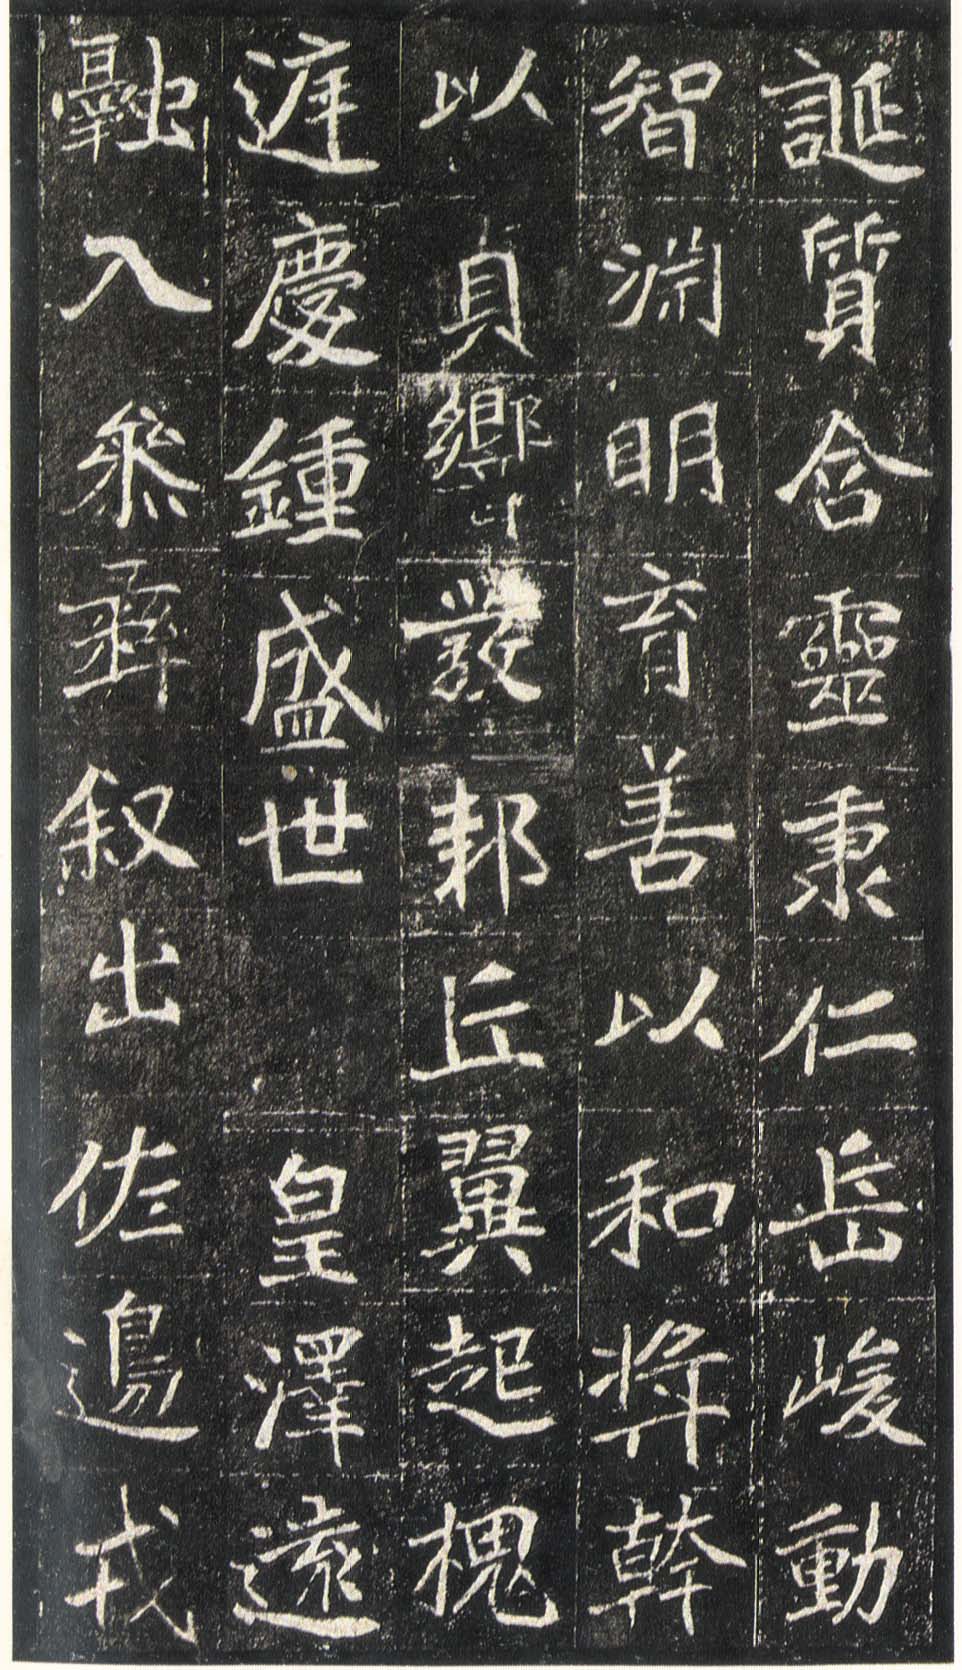 誕質含靈秉仁岳峻動
智淵明育善以和獎幹
以貞響發邦丘翼起槐
庭慶鍾盛世皇澤遠
融入參彝叙出佐邊戎